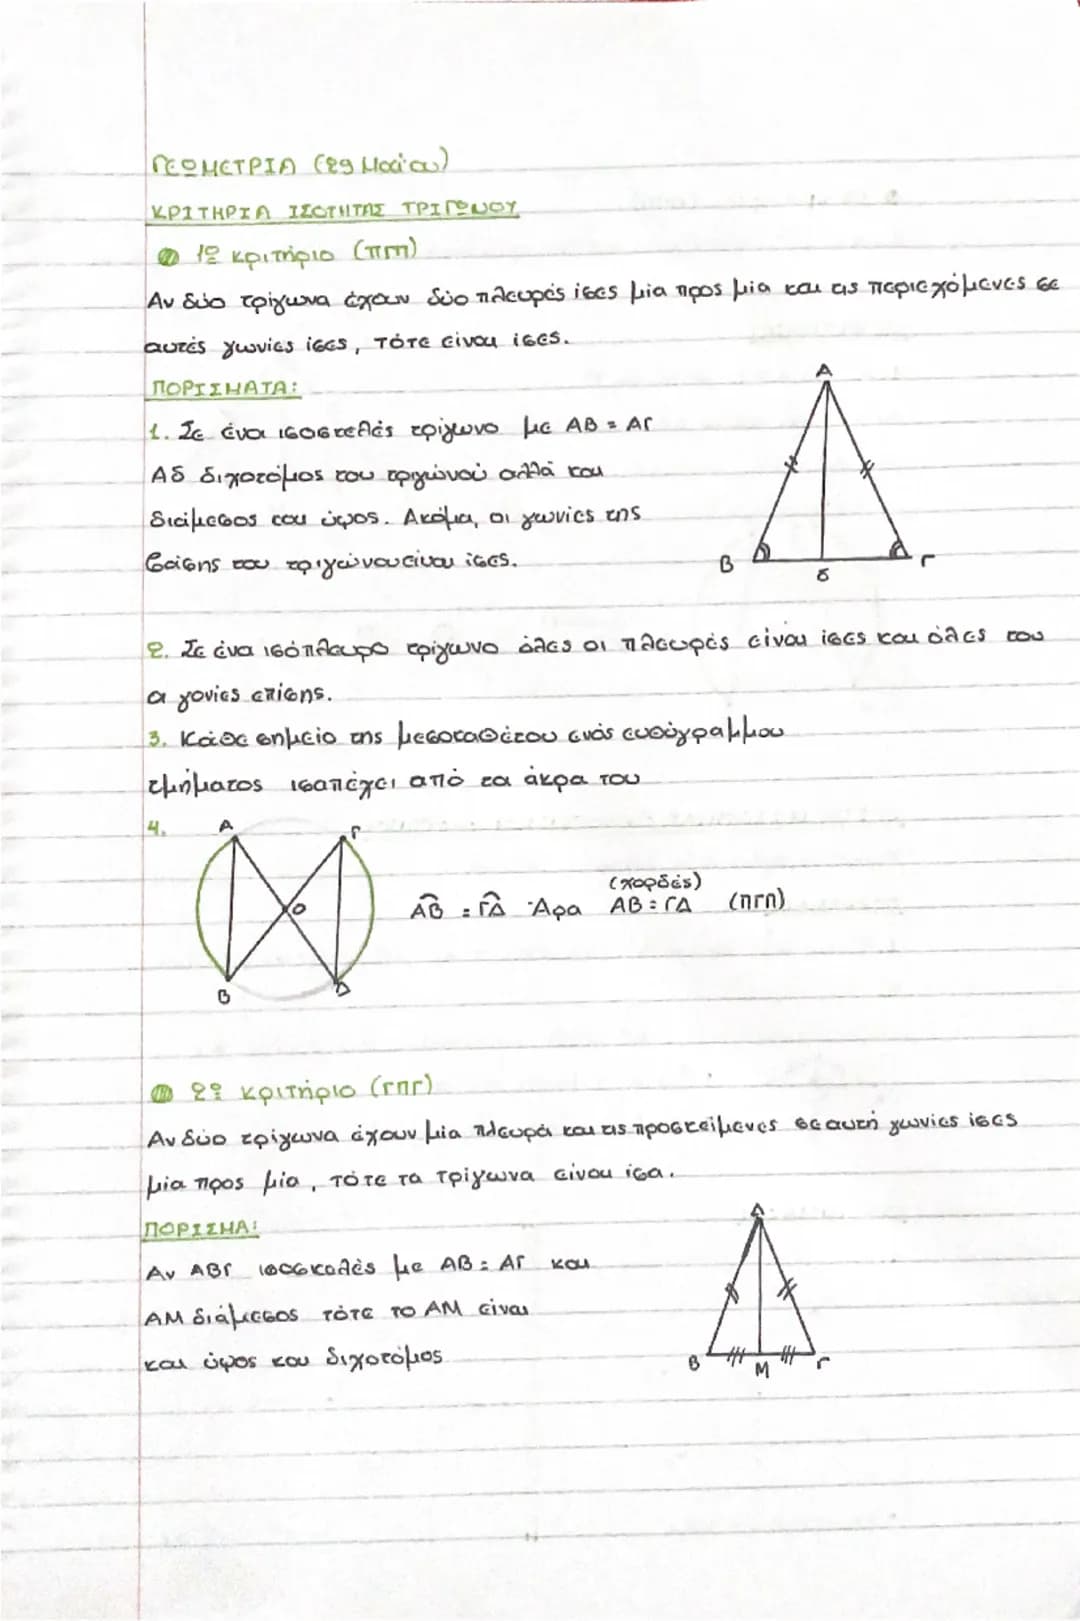 ΓΕΩΜΕΤΡΙΑ (29 Μαΐου)
ΚΡΙΤΗΡΙΑ ΙΣΟΤΗΤΑΣ ΤΡΙΓΩΝΟΥ
1º κριτήριο (πγπ)
Αν δύο τρίγωνα έχουν δύο πλευρές ίσες μία προς μία και τις περιεχόμενες σε
αυτές γωνίες ίσες, τότε είναι ίσες.
ΠΟΡΙΣΜΑΤΑ:
1. Σε ένα ισοσκελές τρίγωνο με ΑΒ = ΑΓ
Αδ διχοτόμος του τριγώνου αλλά και
διάμεσος και ύψος. Ακόμα, οι γωνίες της
βάσης του τριγώνου είναι ίσες.
Α
Β
δ
Γ
2. Σε ένα ισόπλευρο τρίγωνο όλες οι πλευρές είναι ίσες και όλες του
οι γονίες επίσης.
3. Κάθε σημείο της μεσοκαθέτου ενός ευθύγραμμου
τμήματος ισαπέχει από τα άκρα του
4.
Α
Γ
Ο
Β
Δ
(χορδές)
ΑΒ = ΓΔ Άρα ΑΒ = ΓΔ (πγπ)
2º κριτήριο (γπγ)
Αν δύο τρίγωνα έχουν μία πλευρά και τις προσκείμενες σε αυτή γωνίες ίσες
μία προς μία, τότε τα τρίγωνα είναι ίσα.
ΠΟΡΙΣΜΑ:
Αν ΑΒΓ ισοσκελές με ΑΒ = ΑΓ και
ΑΜ διάμεσος τότε το ΑΜ είναι
και ύψος και διχοτόμος
Α
Β
Μ
Γ